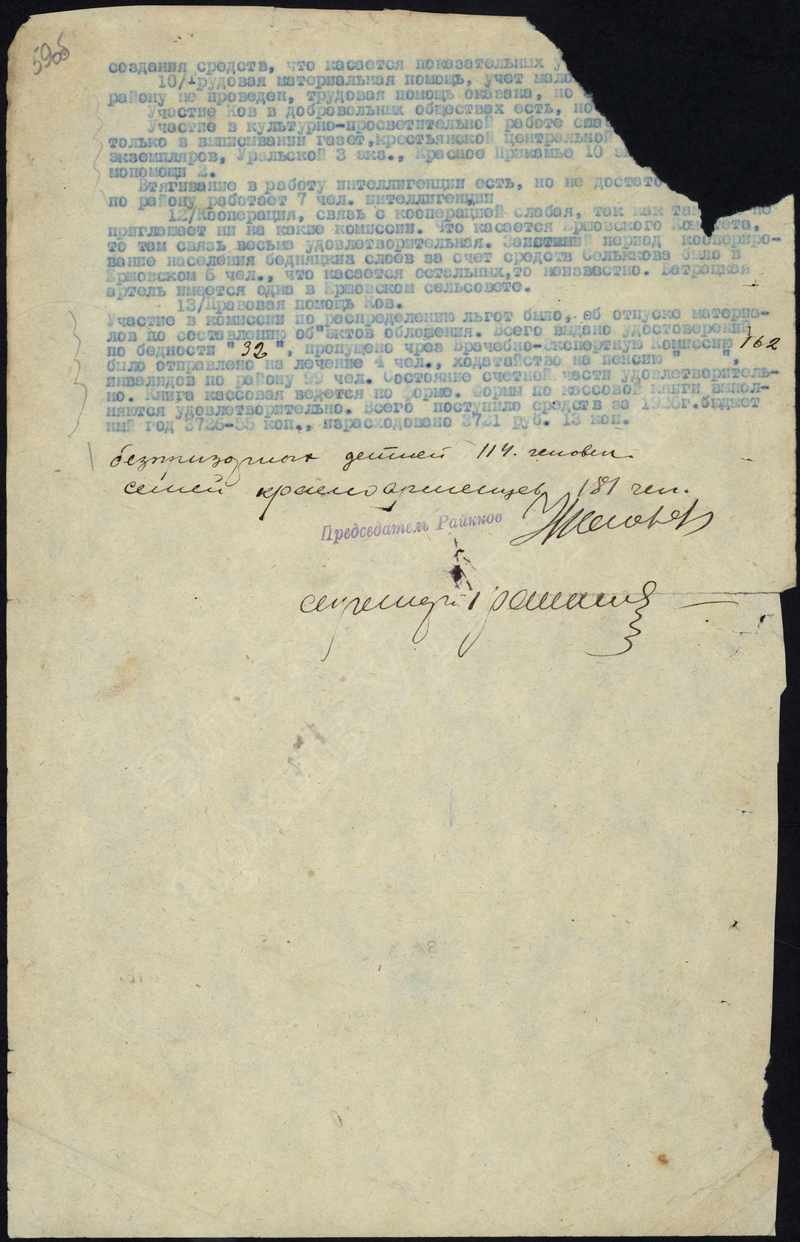 59об
создания средств, что касается показательных у
10/Трудовая материальная помощь, учет мало
району не проведен, трудовая помощь оказана, но
Участие Ков в добровольных обществах есть, но
Участие в культурно-просветительной работе
только в выписывании газет,крестьянской Центральной
экземпляров, Уральской 3 экз., Красное Прикамье 10
мопомощи 2.
Втягивание в работу интеллигенции есть, но не достато
по району работает 7 чел. интеллигенции
12/Кооперация, связь с кооперацией слабая, так как там не
приглашает ни на какие комиссии. Что касается Ершовского Комитета,
то там связь весьма удовлетворительная. период кооперирования
вание населения бедняцких слоев за счет средств Селькова было в
Ершовском 6 чел., что касается остальных,то неизвестно. Батрацкая
артель имеется одна в Ершовском сельсовете.
13/Правовая помощь Ков.
Участие в комиссии по распределению льгот было, об отпуске материа-
лов по составлению об"ектов обложения. Всего выдано удостоверений
по бедности "32", пропущено чрез Врачебно-Экспертную Комиссию 162
было отправлено на лечение 4 чел., ходатайство на пенсию " ",
инвалидов по району 99 чел. Состояние счетной части удовлетворитель-
но. Книга кассовая ведется по форме. Формы по кассовой книги выпол-
няются удовлетворительно. Всего поступило средств за 1926г.бюджет
ный год 3726-55 коп., израсходовано 3721 руб. 13 коп.
безпризорных детей 114 человек.
семей красноармейцев 181 чел.
Председатель Райкков
секретарь